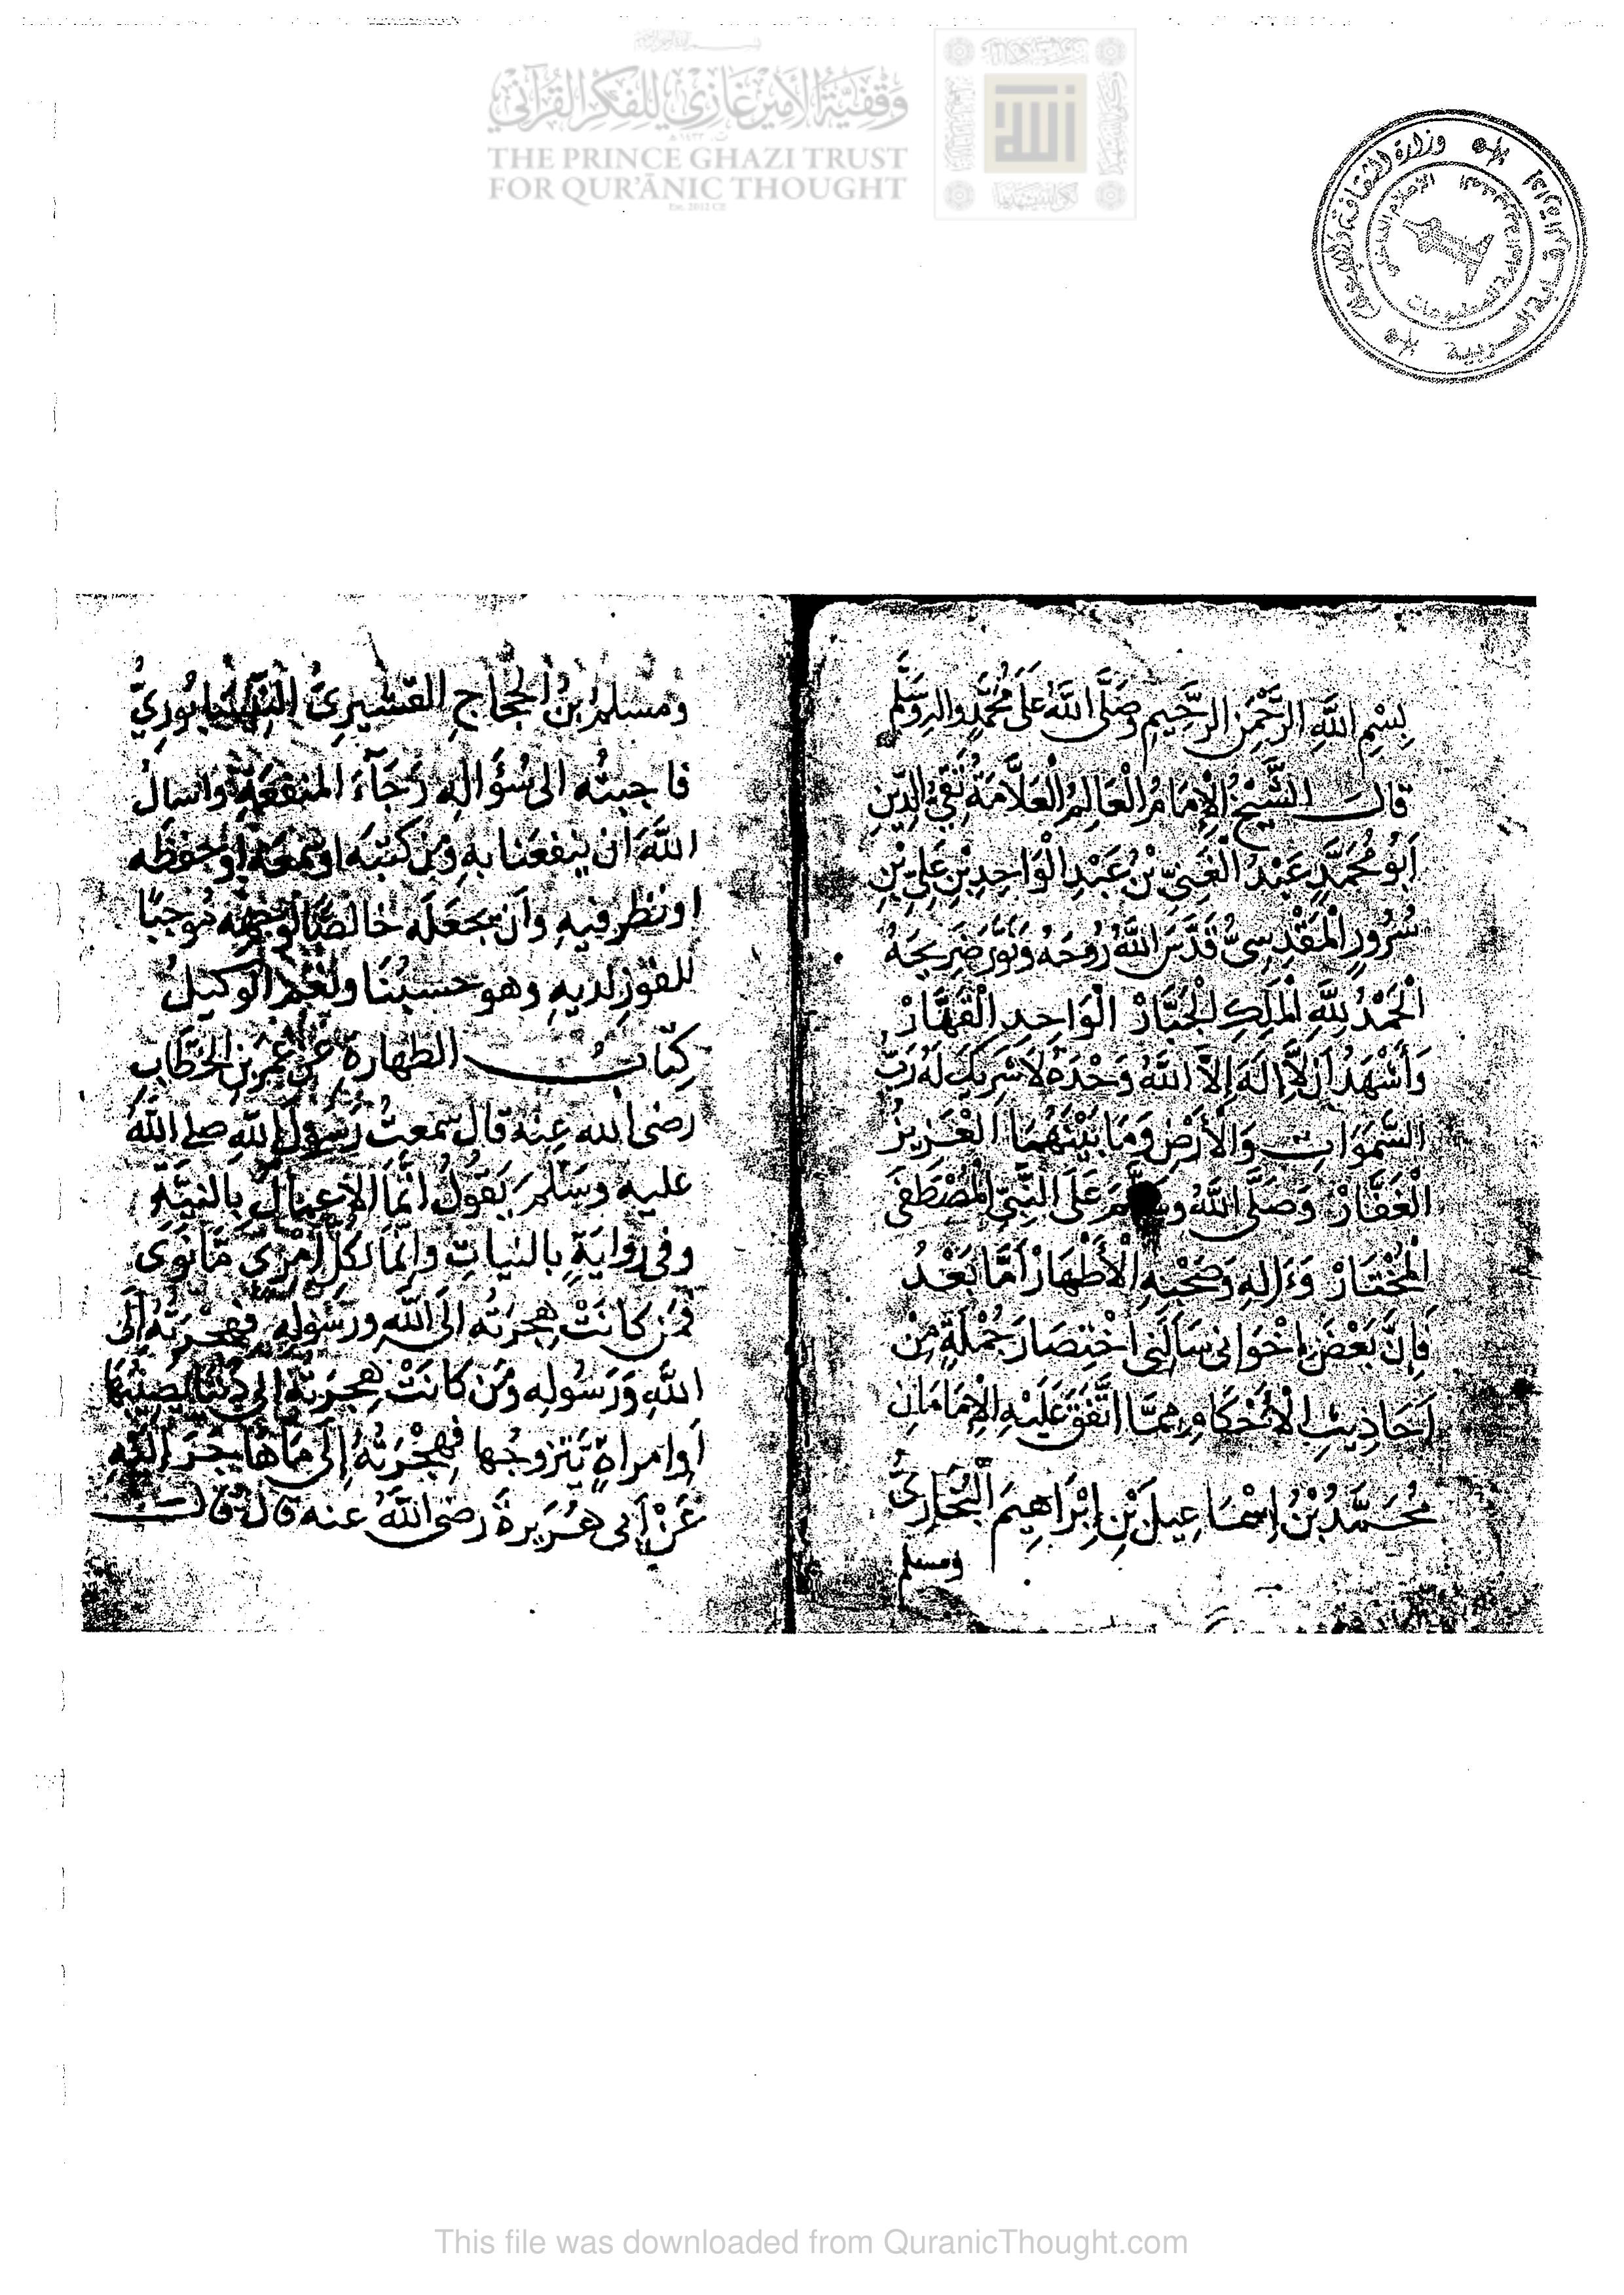 وقفية الأمير غازي للفكر القرآني
THE PRINCE GHAZI TRUST
FOR QUR'ĀNIC THOUGHT
Est. 2012 CE
وزارة الثقافة
بِسْمِ اللَّهِ الرَّحْمَنِ الرَّحِيمِ وَصَلَّى اللَّهُ عَلَى مُحَمَّدٍ وَالِهِ وَسَلَّم
قال الشَّيْخُ الْإِمَامُ الْعَالِمُ الْعَلَّامَةُ تَقِيُّ الدِّينِ
أَبُو مُحَمَّدٍ عَبْدُ الْغَنِيِّ بْنُ عَبْدِ الْوَاحِدِ بْنِ عَلِيِّ بْنِ
سُرُورٍ الْمَقْدِسِيُّ قَدَّسَ اللَّهُ رُوحَهُ وَنَوَّرَ ضَرِيحَهُ
الْحَمْدُ لِلَّهِ الْمَلِكِ الْجَبَّارْ الْوَاحِدِ الْقَهَّارْ
وَأَشْهَدُ أَنْ لَا إِلَهَ إِلَّا اللَّهُ وَحْدَهُ لَا شَرِيكَ لَهُ رَبُّ
السَّمَوَاتِ وَالْأَرْضِ وَمَا بَيْنَهُمَا الْعَزِيزُ
الْغَفَّارْ وَصَلَّى اللَّهُ عَلَى النَّبِيِّ الْمُصْطَفَى
الْمُخْتَارْ وَءَالِهِ وَصَحْبِهِ الْأَطْهَارْ أَمَّا بَعْدُ
فَإِنَّ بَعْضَ إِخْوَانِي سَأَلَنِي اخْتِصَارَ جُمْلَةٍ مِنْ
أَحَادِيثِ الْأَحْكَامِ مِمَّا اتَّفَقَ عَلَيْهِ الْإِمَامَانِ
مُحَمَّدُ بْنُ إِسْمَاعِيلَ بْنِ إِبْرَاهِيمَ الْبُخَارِيُّ
ومسلم
ومسلم بن الحجاجِ القشيرىُّ النيسابُورِيُّ
فاجبتُه الى سُؤَالِهِ رَجَآءَ المنفعَةِ واسالُ
اللَّهَ ان ينفعَنا بِهِ ومَن كتبَه او سَمعَه او حفظَه
او نظر فيهِ وَأَن يجعَلَه خالصًا لوجهِه مُوجبًا
للفوزِ لديهِ وهو حسبُنَا ونعْمَ الوكيلُ
كِتابُ الطهارة عن عُمر بن الخطّابِ
رضى الله عنه قال سمعتُ رَسُولَ اللّهِ صلى اللّه
عليه وسَلّم يَقولُ انَّمَا الاعمالُ بِالنيَّةِ
وفى رِوايَةٍ بالنياتِ وانمَّا لكُلِّ امْرِئٍ مَّا نَوَى
فمَن كانَتْ هِجرَتُه الَى اللَّهِ ورَسُولِهِ فهِجْرَتُهُ الَى
اللَّهِ وَرَسُولِه ومَن كَانَتْ هِجرَتُهُ إلى دُنْيَا يُصيبُهَا
أوِ امراةٍ يَتَزوجُها فهِجْرَتُهُ إِلَى مَا هَاجَرَ الَيْهِ
عَنْ أَبِى هُرَيرةَ رَضِىَ اللَّهُ عنه قال قَالَ
This file was downloaded from QuranicThought.com